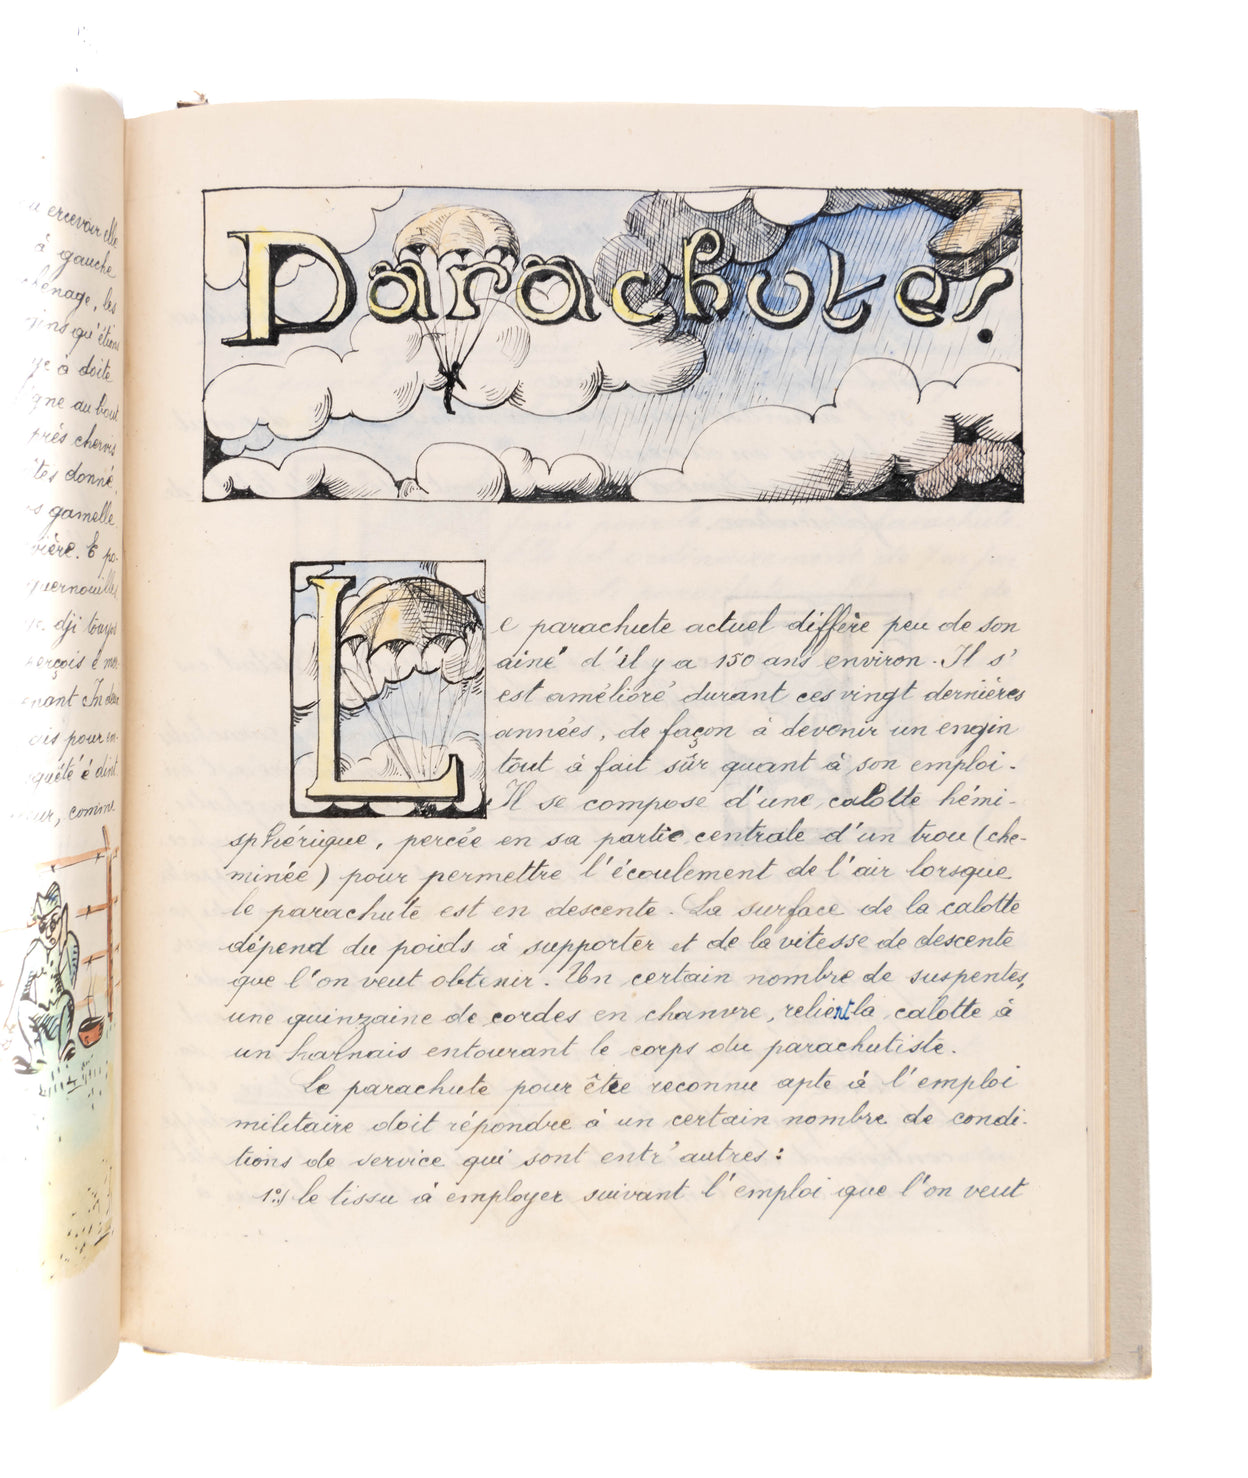 à gauche
gne au bout
près
donné,
gamelle,
dji
pour
comme
Parachutes.
Le parachute actuel diffère peu de son
ainé d'il y a 150 ans environ. Il s'
est amélioré durant ces vingt dernières
années, de façon à devenir un engin
tout à fait sûr quant à son emploi.
Il se compose d'une calotte hémi-
sphérique, percée en sa partie centrale d'un trou (che-
minée) pour permettre l'écoulement de l'air lorsque
le parachute est en descente. La surface de la calotte
dépend du poids à supporter et de la vitesse de descente
que l'on veut obtenir. Un certain nombre de suspentes,
une quinzaine de cordes en chanvre, relient la calotte à
un harnais entourant le corps du parachutiste.
Le parachute pour être reconnu apte à l'emploi
militaire doit répondre à un certain nombre de condi-
tions de service qui sont entr'autres :
1º) le tissu à employer suivant l'emploi que l'on veut